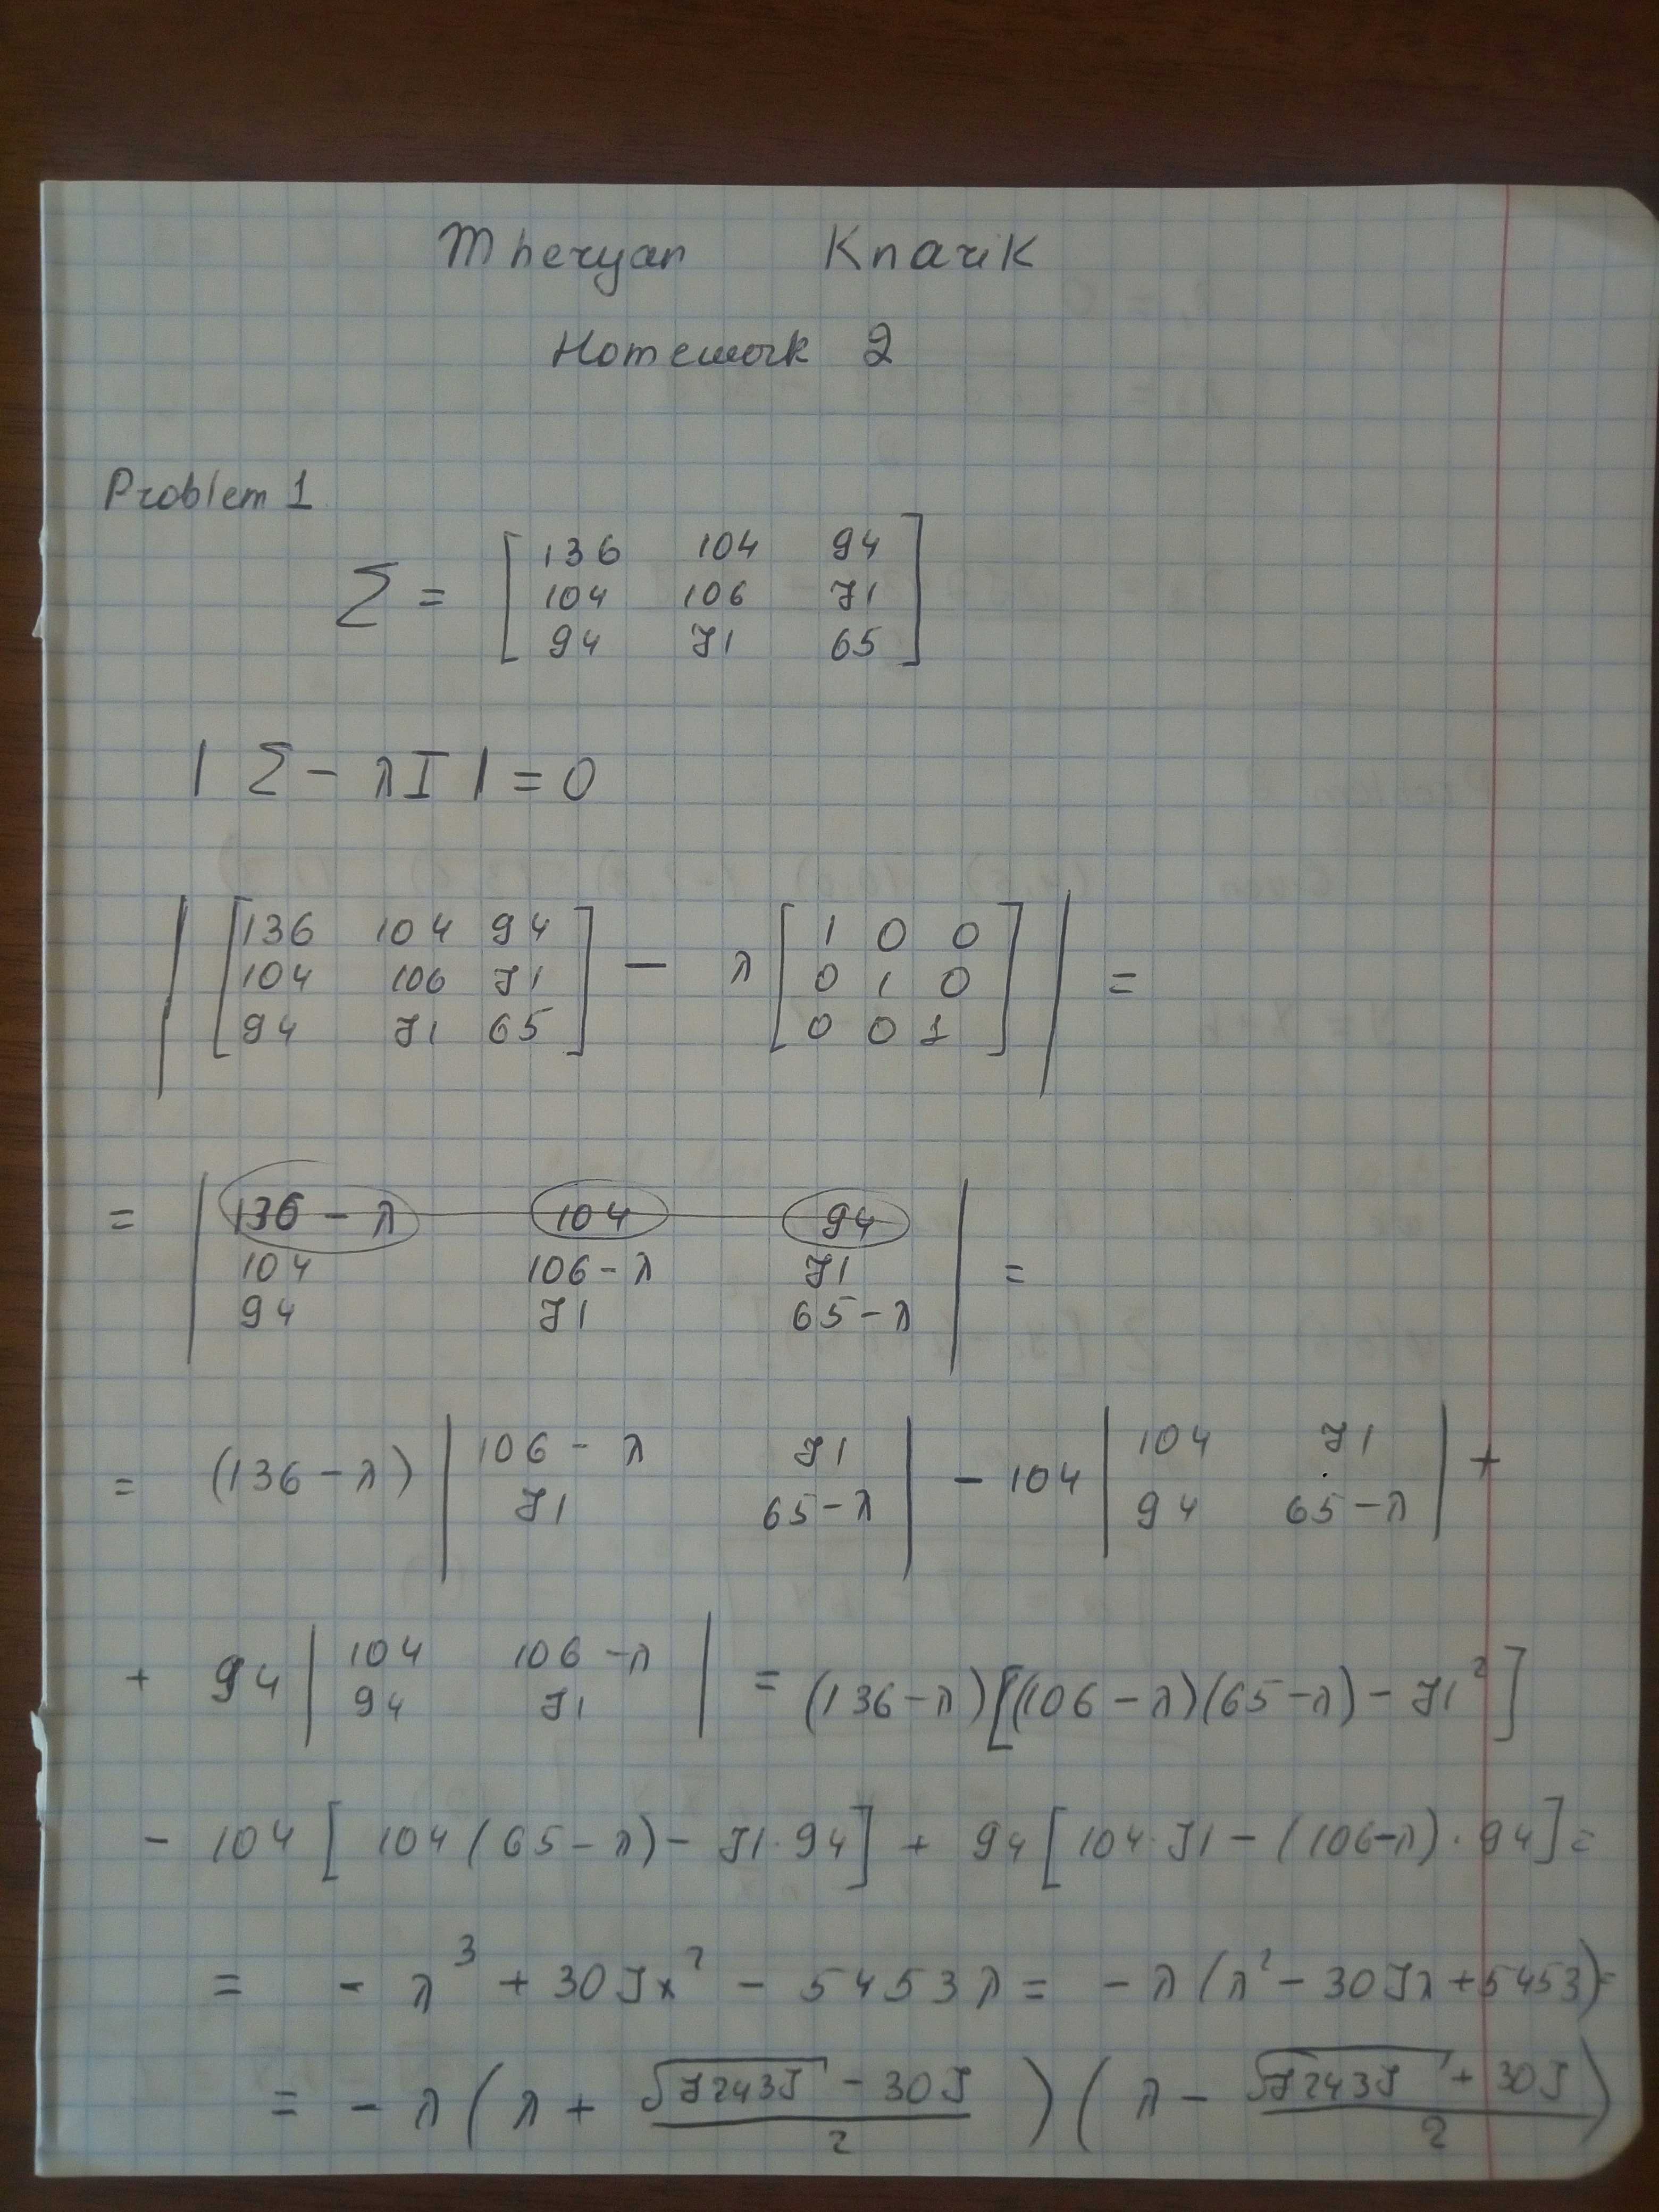 Mheryan Knarik
Homework 2
Problem 1.
Σ = [ 136 104 94
104 106 71
94 71 65 ]
| Σ - λI | = 0
| [ 136 104 94
104 106 71
94 71 65 ] - λ [ 1 0 0
0 1 0
0 0 1 ] | =
= | 136 - λ 104 94
104 106 - λ 71
94 71 65 - λ | =
= (136 - λ) | 106 - λ 71
71 65 - λ | - 104 | 104 71
94 65 - λ | +
+ 94 | 104 106 - λ
94 71 | = (136 - λ)[(106 - λ)(65 - λ) - 71²]
- 104 [ 104 (65 - λ) - 71·94 ] + 94 [ 104·71 - (106-λ)·94 ] =
= - λ³ + 307x² - 5453λ = - λ (λ² - 307λ + 5453) =
= - λ ( λ + (√72437 - 307)/2 ) ( λ - (√72437 + 307)/2 )